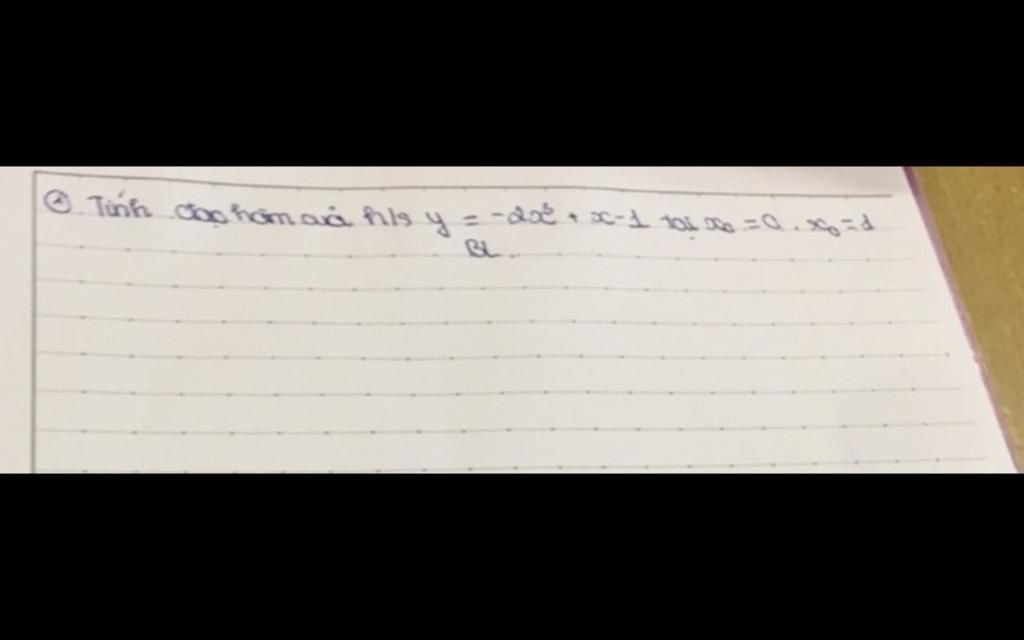 Tính đạo hàm của h/s y = -2x² + x-1 tại x₀ = 0. x₀ = 1
BL.